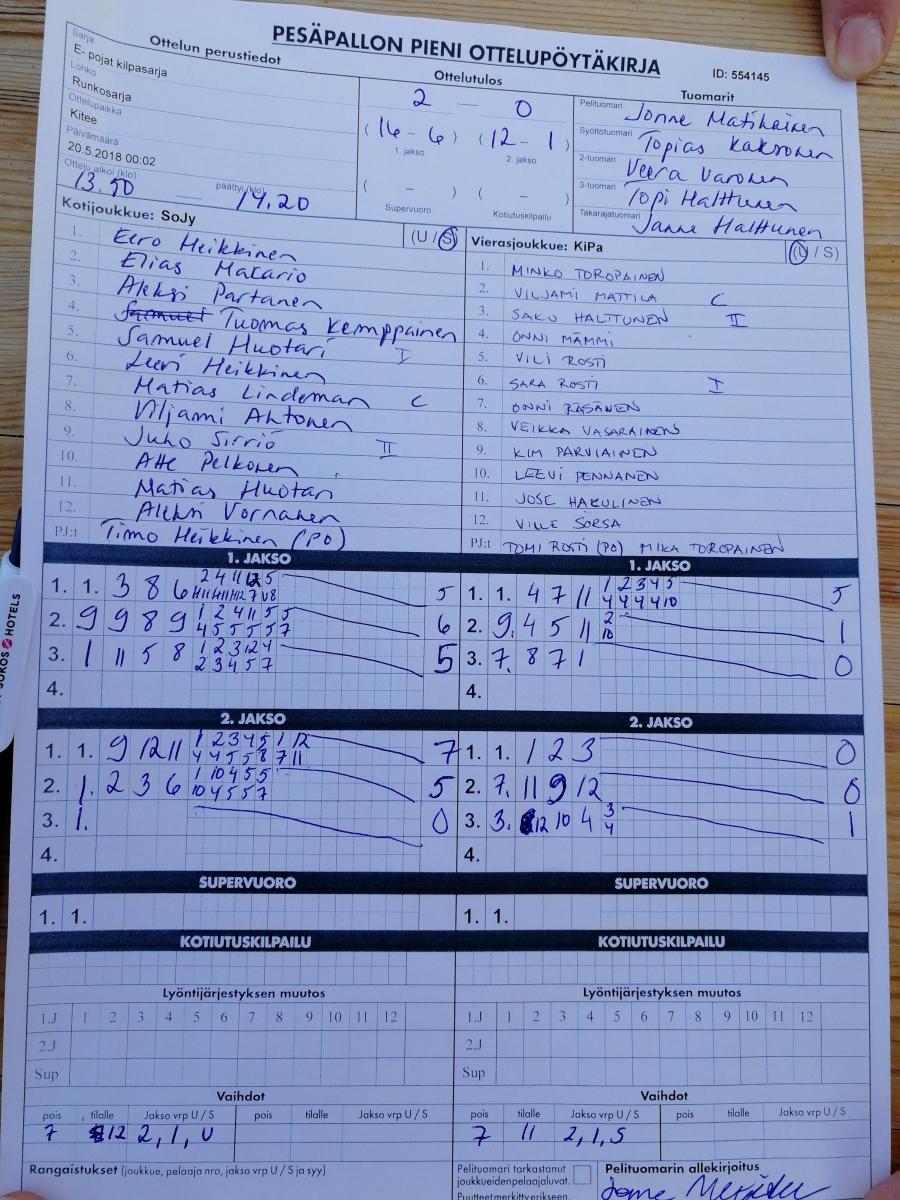 PESÄPALLON PIENI OTTELUPÖYTÄKIRJA
ID: 554145
Ottelun perustiedot
Sarja
E- pojat kilpasarja
Lohko
Runkosarja
Ottelupaikka
Kitee
Päivämäärä
20.5.2018 00:02
Ottelu alkoi (klo) päättyi (klo)
13.50 — 14.20
Ottelutulos
2 — 0
(16 - 6) (12 - 1)
1. jakso 2. jakso
( - ) ( - )
Supervuoro Kotiutuskilpailu
Tuomarit
Pelituomari Jonne Matikainen
Syöttötuomari Topias Kaksonen
2-tuomari Veera Varonen
3-tuomari Topi Halttunen
Takarajatuomari Janne Halttunen
Kotijoukkue: SoJy (U / S)
1. Eero Heikkinen
2. Elias Makario
3. Aleksi Partanen
4. Tuomas Kemppainen
5. Samuel Huotari I
6. Leevi Heikkinen
7. Matias Lindeman C
8. Viljami Ahtonen
9. Juho Sirviö II
10. Atte Pelkonen
11. Matias Huotari
12. Aleksi Vornanen
PJ:t Timo Heikkinen (PO)
Vierasjoukkue: KiPa (U / S)
1. MINKO TOROPAINEN
2. VILJAMI MATTILA C
3. SAKU HALTTUNEN II
4. ONNI MÄMMI
5. VILI ROSTI
6. SARA ROSTI I
7. ONNI RÄSÄNEN
8. VEIKKA VASARAINEN
9. KIM PARVIAINEN
10. LEEVI PENNANEN
11. JOSE HAKULINEN
12. VILLE SORSA
PJ:t TOMI ROSTI (PO) MIKA TOROPAINEN
1. JAKSO
1. 1. 3 8 6 5
2. 9 9 8 9 1 2 4 11 5 5 6
4 5 5 5 5 7
3. 1 11 5 8 1 2 3 12 4 5
2 3 4 5 7
4.
1. JAKSO
1. 1. 4 7 11 1 2 3 4 5 5
4 4 4 4 10
2. 9. 4 5 11 2 1
10
3. 7. 8 7 1 0
4.
2. JAKSO
1. 1. 9 12 11 1 2 3 4 5 1 12 7
4 4 5 5 8 7 11
2. 1. 2 3 6 1 10 4 5 5 5
10 4 5 5 7
3. 1. 0
4.
2. JAKSO
1. 1. 1 2 3 0
2. 7. 11 9 12 0
3. 3. 12 10 4 3 1
4
4.
SUPERVUORO
1. 1.
SUPERVUORO
1. 1.
KOTIUTUSKILPAILU
KOTIUTUSKILPAILU
Lyöntijärjestyksen muutos
1.J 1 2 3 4 5 6 7 8 9 10 11 12
2.J
Sup
Lyöntijärjestyksen muutos
1.J 1 2 3 4 5 6 7 8 9 10 11 12
2.J
Sup
Vaihdot
pois tilalle Jakso vrp U / S pois tilalle Jakso vrp U / S
7 12 2, 1, U
Vaihdot
pois tilalle Jakso vrp U / S pois tilalle Jakso vrp U / S
7 11 2, 1, S
Rangaistukset (joukkue, pelaaja nro, jakso vrp U / S ja syy)
Pelituomari tarkastanut
joukkueidenpelaajaluvat.
Puutteet merkitty erikseen.
Pelituomarin allekirjoitus
SOKOS HOTELS